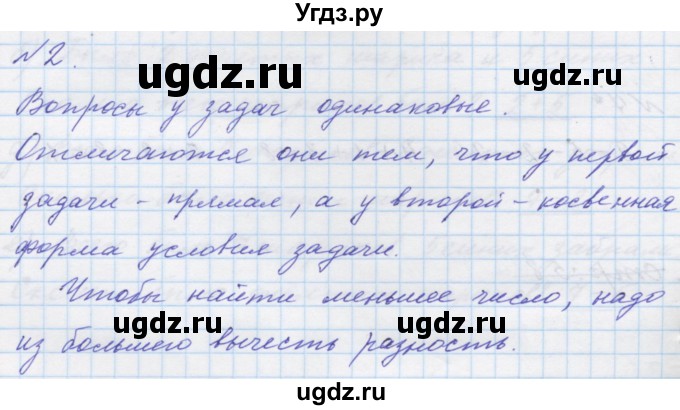 Угдз.ру
№2.
ugdz.ru
Вопросы у задач одинаковые.
Отличаются они тем, что у первой
ugdz.ru
задачи - прямая, а у второй - косвенная
форма условия задачи.
Чтобы найти меньшее число, надо
ugdz.ru ugdz.ru
из большего вычесть разность.
ugdz.ru